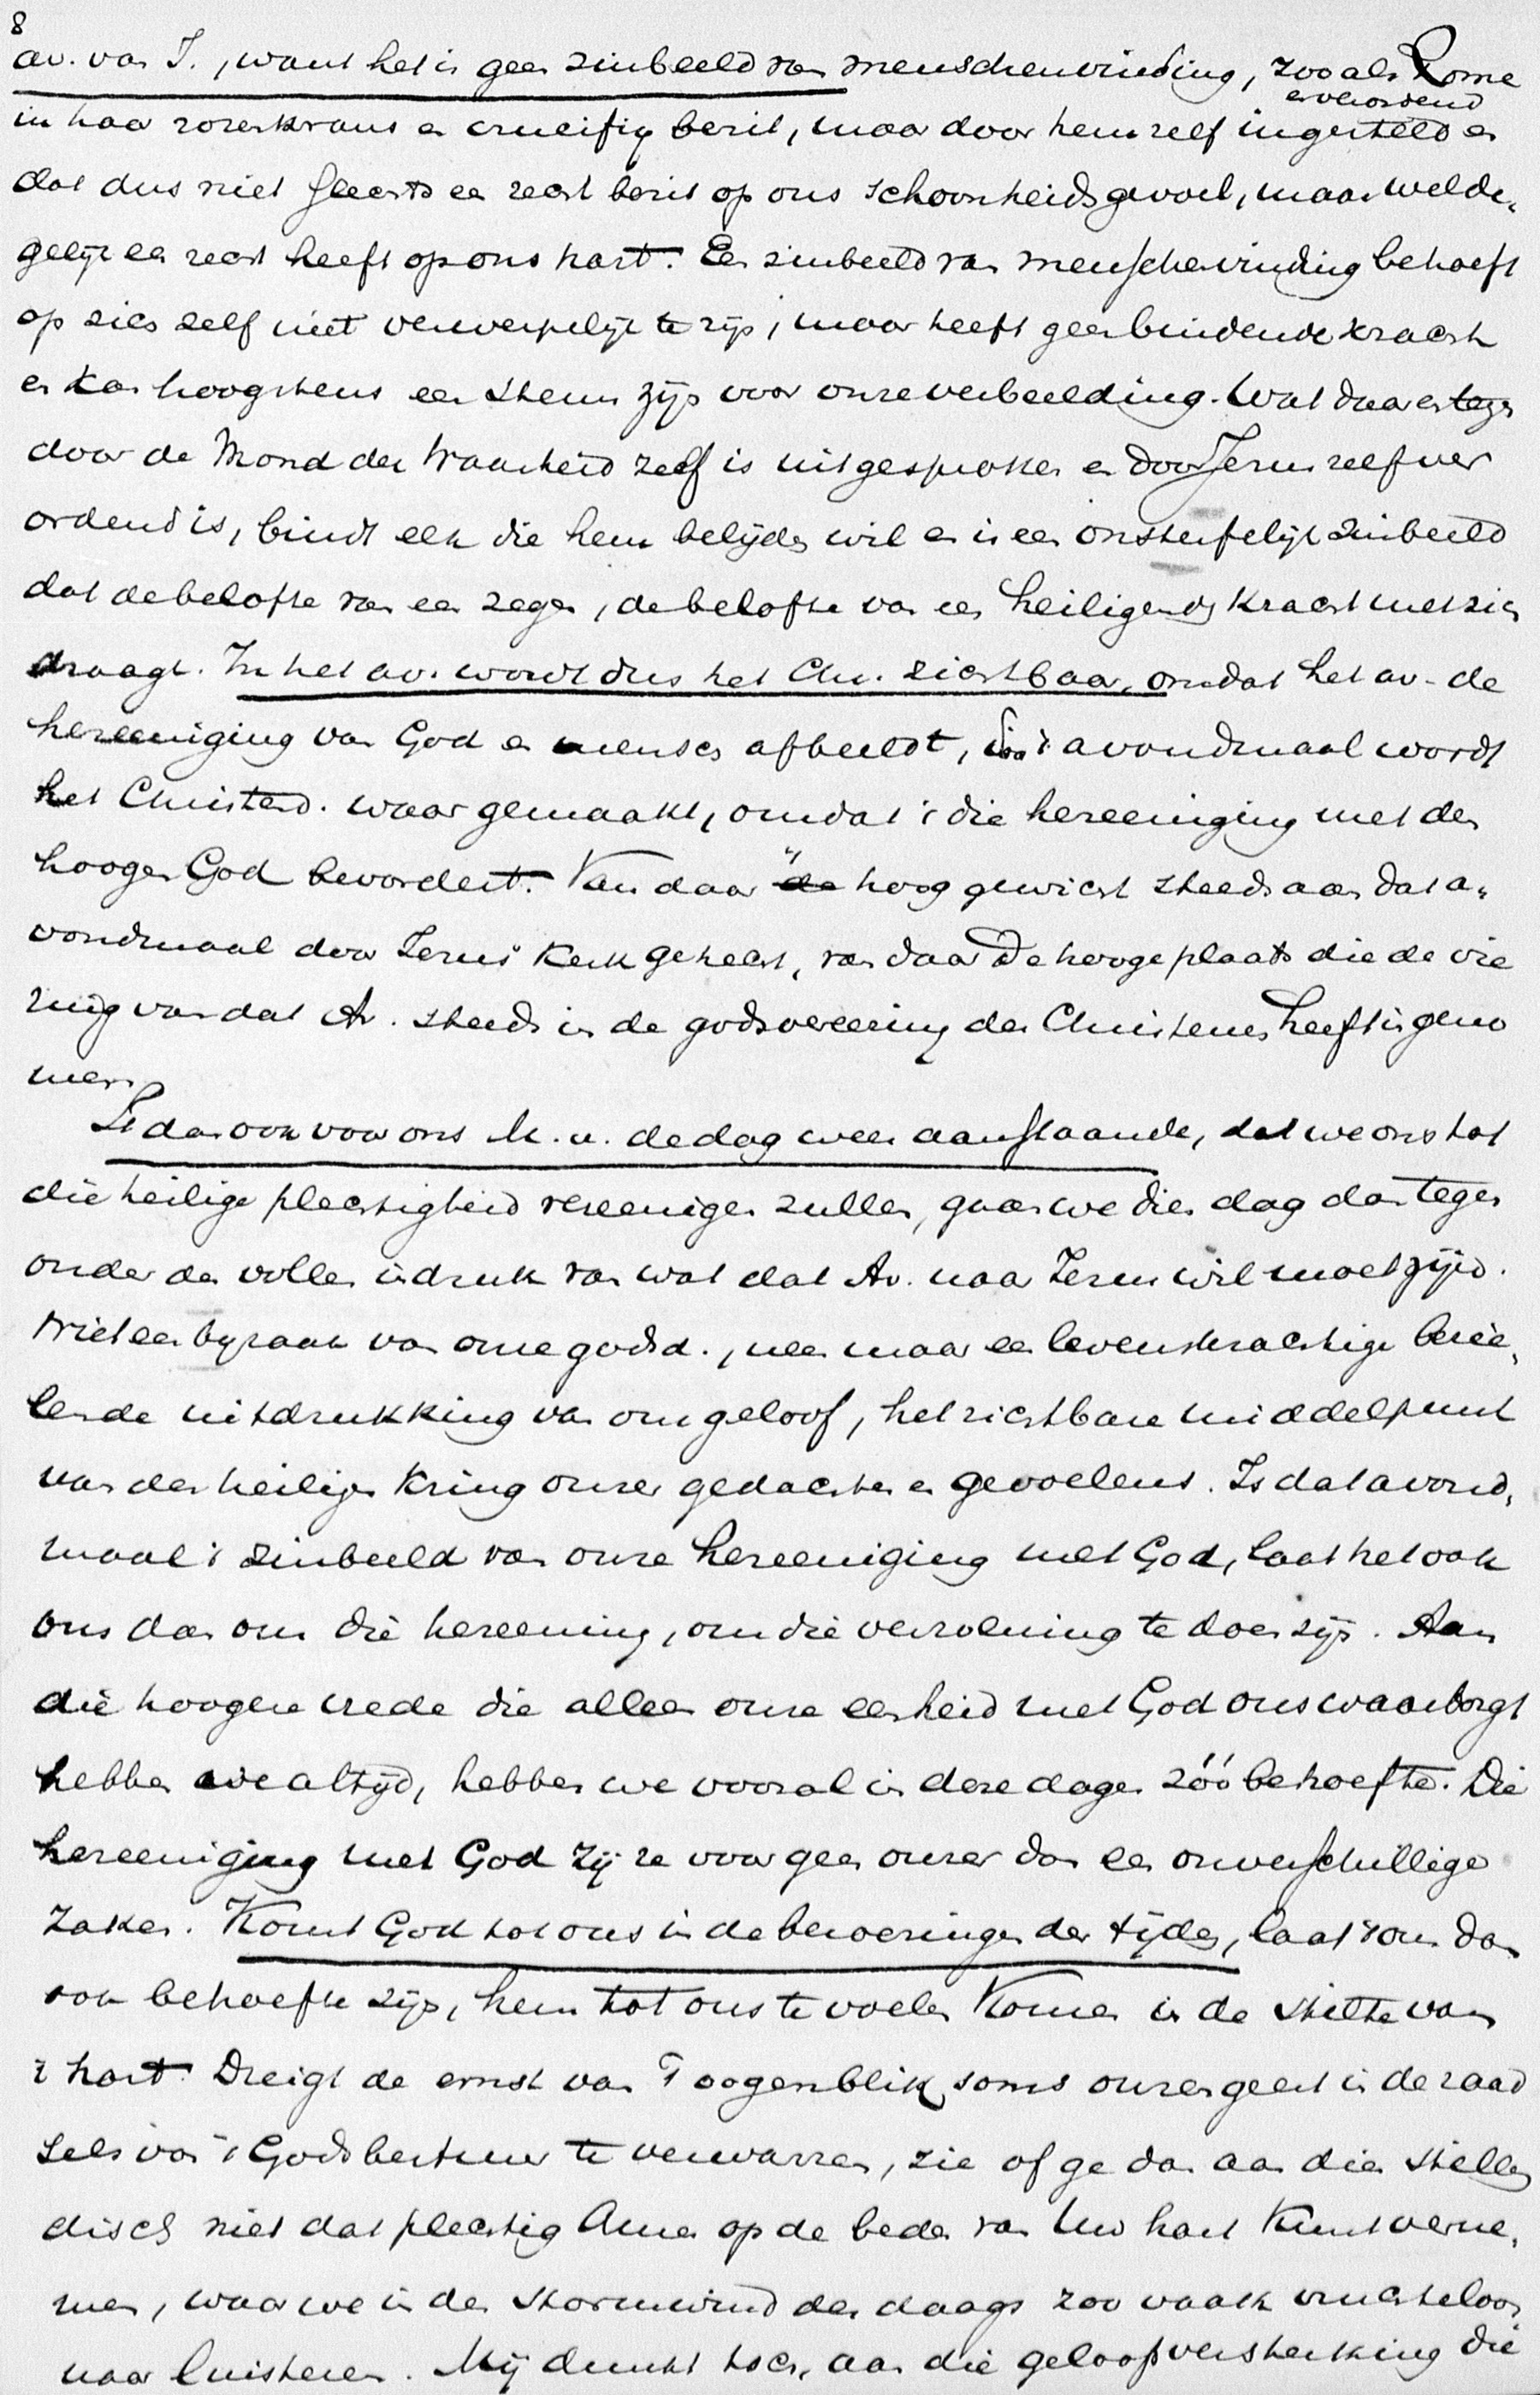 8
av. van J., want het is geen zinbeeld van menschenvinding, zooals Rome
en verordend
in haar rozenkrans en crucifix bezit, maar door hem zelf ingesteld en
dat dus niet slechts een recht bezit op ons schoonheidsgevoel, maar welde„
gelijk een recht heeft op ons hart. Een zinbeeld van menschenvinding behoeft
op zich zelf niet verwerpelijk te zijn, maar heeft geen bindende kracht
en kan hoogstens een steun zijn voor onze verbeelding. Wat daarentegen
door de Mond der Waarheid zelf is uitgesproken en door Jezus zelf ver
ordend is, bindt elk die hem belijden wil en is een onsterfelijk Zinbeeld
dat de belofte van een zegen, de belofte van een heiligende kracht met zich
draagt. In het av. wordt dus het Chr. zichtbaar, omdat het av. de
hereeniging van God en mensch afbeeldt, 't avondmaal wordt
het Christend. waar gemaakt, omdat 't die hereeniging met den
hoogen God bevordert. Van daar 't hoog gewicht steeds aan dat a„
vondmaal door Jezus' Kerk gehecht, van daar de hooge plaats die de vie
ring van dat Av. steeds in de godsvereering der Christenen heeft ingeno
men.
Is dan ook voor ons M. v. de dag weer aanstaande, dat we ons tot
die heilige plechtigheid vereenigen zullen, gaan we dien dag dan tegen
onder den vollen indruk van wat dat Av. naar Jezus wil moet zijn.
Niet een byzaak van onze godsd., neen maar een levenskrachtige bezie„
lende uitdrukking van ons geloof, het zichtbare middelpunt
van den heiligen Kring onzer gedachten en gevoelens. Is dat avond„
maal 't zinbeeld van onze hereeniging met God, laat het ook
ons dan om die hereening, om die verzoening te doen zijn. Aan
die hoogere vrede die alleen onze eenheid met God ons waarborgt
hebben we altijd, hebben we vooral in deze dagen zóó behoefte. Die
hereeniging met God zij ze voor geen onzer dan een onverschillige
zaken. Komt God tot ons in de beroeringen der tijden, laat 't ons dan
ook behoefte zijn, hem tot ons te voelen Komen in de stilte van
't hart. Dreigt de ernst van 't oogenblik soms onzen geest in de raad
sels van 't Godsbestuur te verwarren, zie of ge dan aan dien stillen
disch niet dat plechtig Amen op de beden van Uw hart Kunt verne„
men, waar we in den stormwind der daags zoo vaak vruchteloos
naar luisteren. Mij dunkt toch, aan die geloofsversterking die